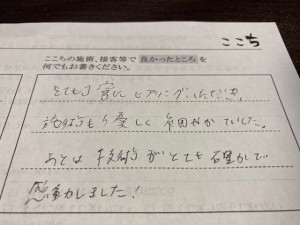 ここち
ここちの施術、接客等で良かったところを
何でもお書きください。
とても丁寧にヒアリングいただき、
施術もり優しく細やかでした。
あとは技術がとても確かで
感動しました!